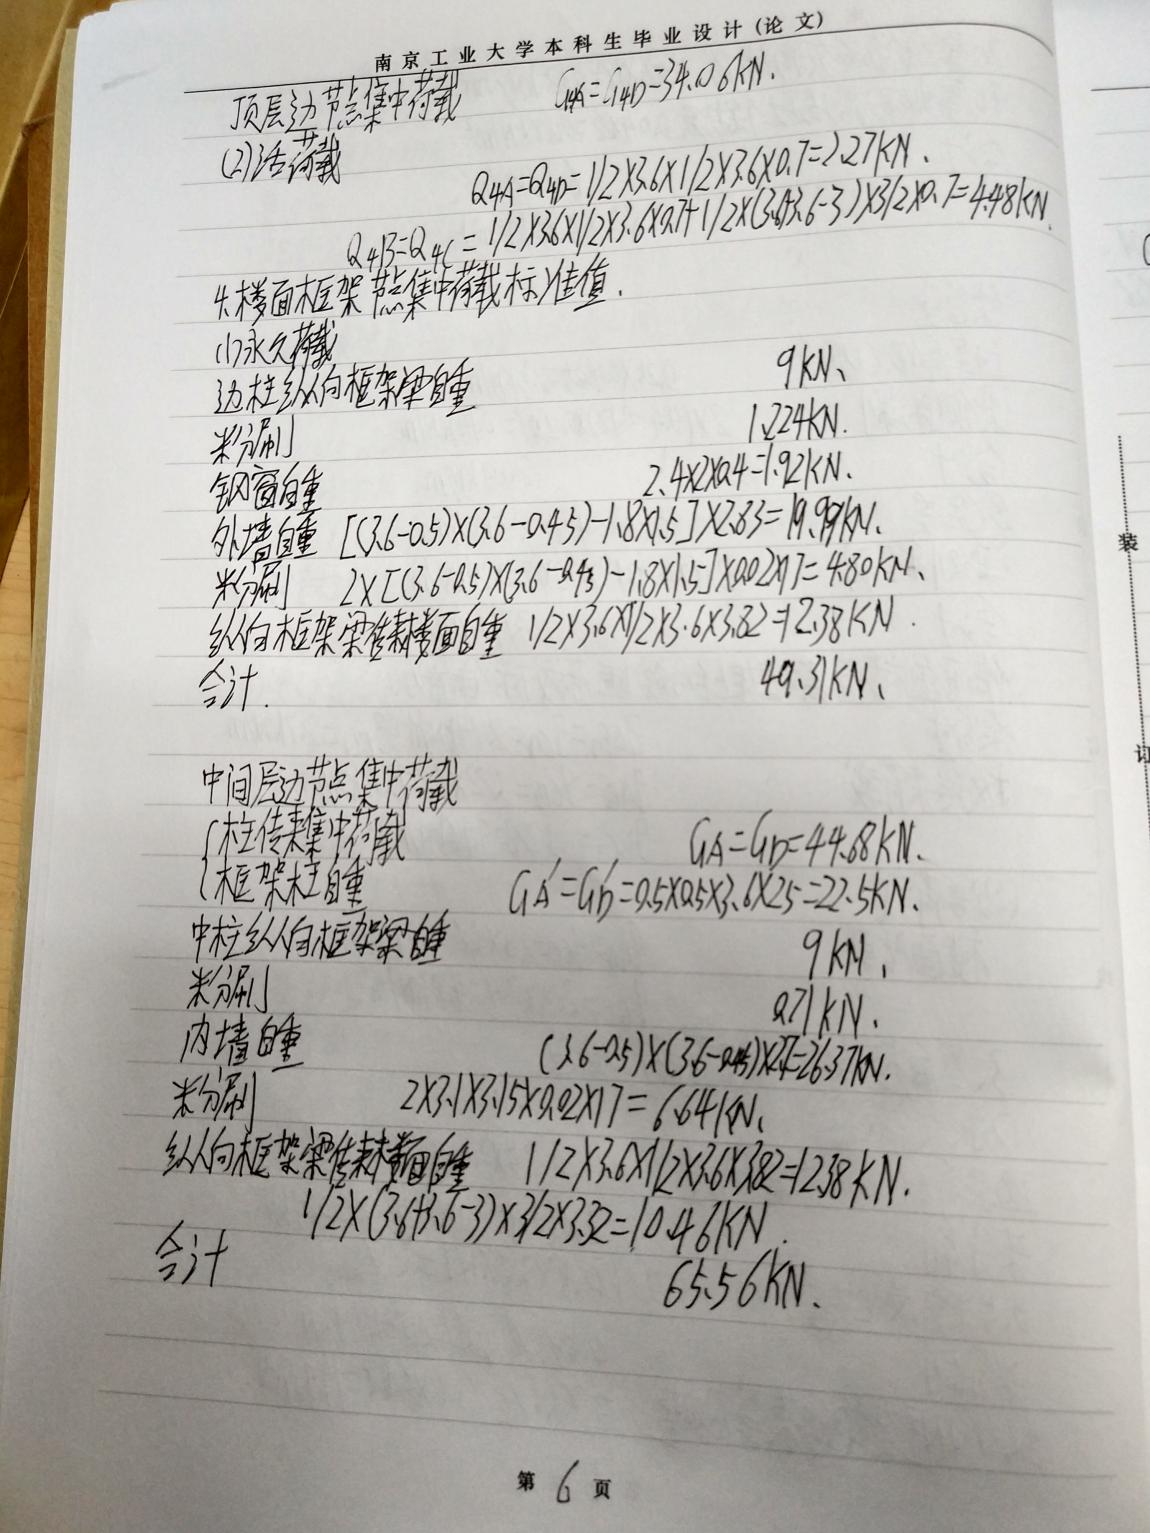 南京工业大学本科生毕业设计(论文)
顶层边节点集中荷载 G4A=G4D=34.06KN.
(2)活荷载
Q4A=Q4D=1/2X3.6X1/2X3.6X0.7=2.27KN.
Q4B=Q4C=1/2X3.6X1/2X3.6X0.7+1/2X(3.6+3.6-3)X3/2X0.7=4.48KN.
4.楼面框架节点集中荷载标准值.
(1)永久荷载
边柱纵向框架梁自重 9KN.
粉刷 1.224KN.
钢窗自重 2.4X2X0.4=1.92KN.
外墙自重 [(3.6-0.5)X(3.6-0.45)-1.8X1.5]X2.83=19.99KN.
粉刷 2X[(3.6-0.5)X(3.6-0.45)-1.8X1.5]X0.02X17=4.80KN.
纵向框架梁传来楼面自重 1/2X3.6X1/2X3.6X3.82=12.38KN.
合计. 49.31KN.
中间层边节点集中荷载
柱传来集中荷载 GA=GD=44.68KN.
框架柱自重 GA'=GD'=0.5X0.5X3.6X25=22.5KN.
中柱纵向框架梁自重 9KN.
粉刷 0.71KN.
内墙自重 (3.6-0.5)X(3.6-0.45)X2.7=26.37KN.
粉刷 2X3.1X3.15X0.02X17=6.64KN.
纵向框架梁传来楼面自重 1/2X3.6X1/2X3.6X3.82=12.38KN.
1/2X(3.6+3.6-3)X3/2X3.32=10.46KN.
合计 65.56KN.
第6页
装
订